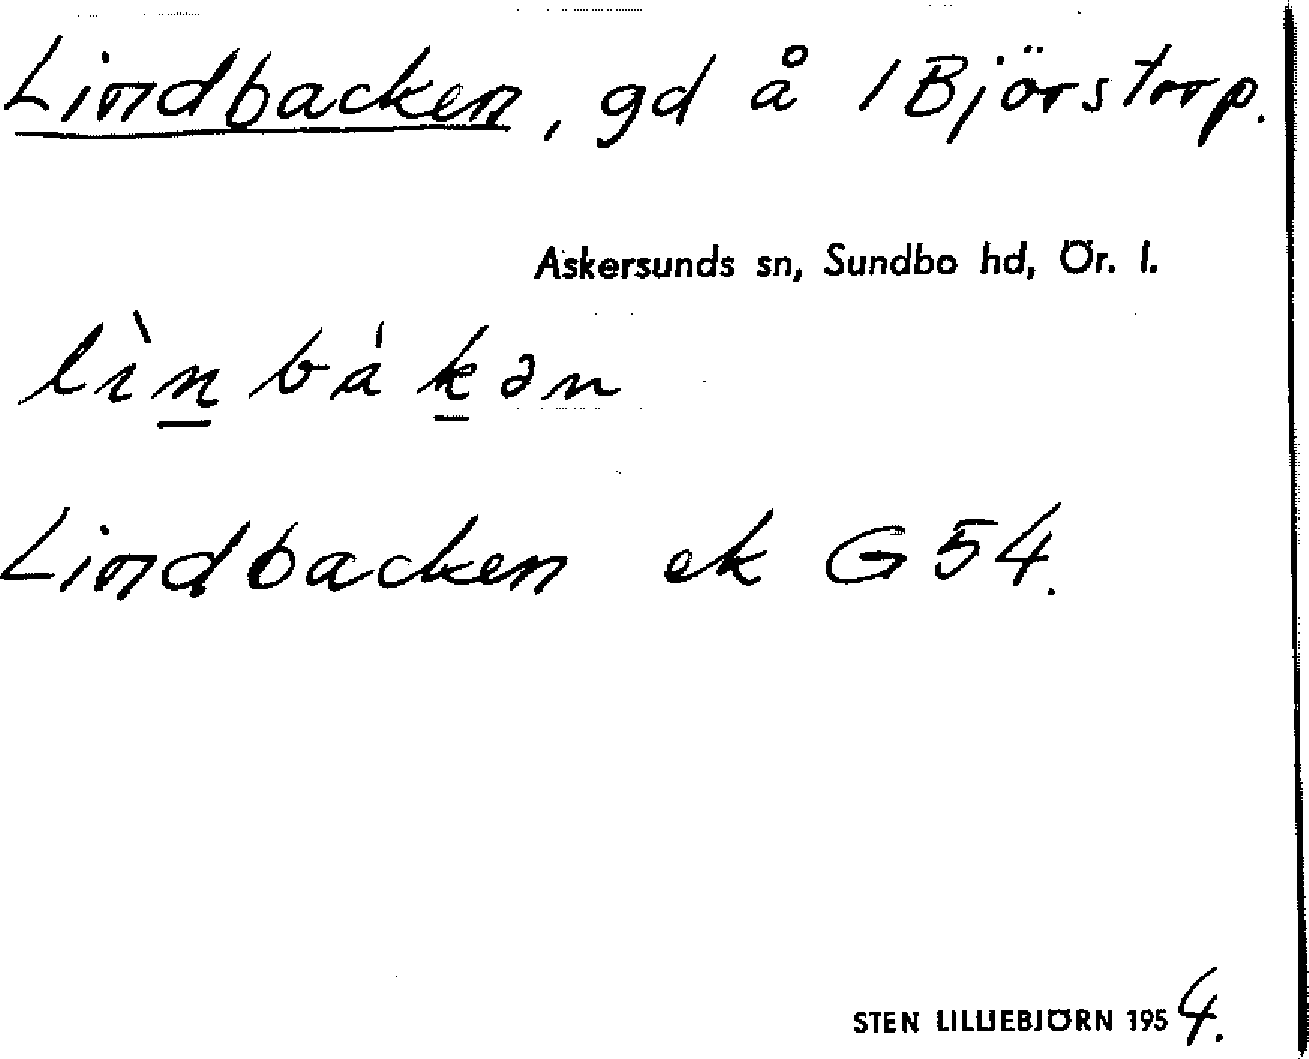 Lindbacken, gd å 1 Björstorp.
Askersunds sn, Sundbo hd, Ör. l.
lìn bá kən
Lindbacken ek G 54.
STEN LILLIEBJÖRN 1954.